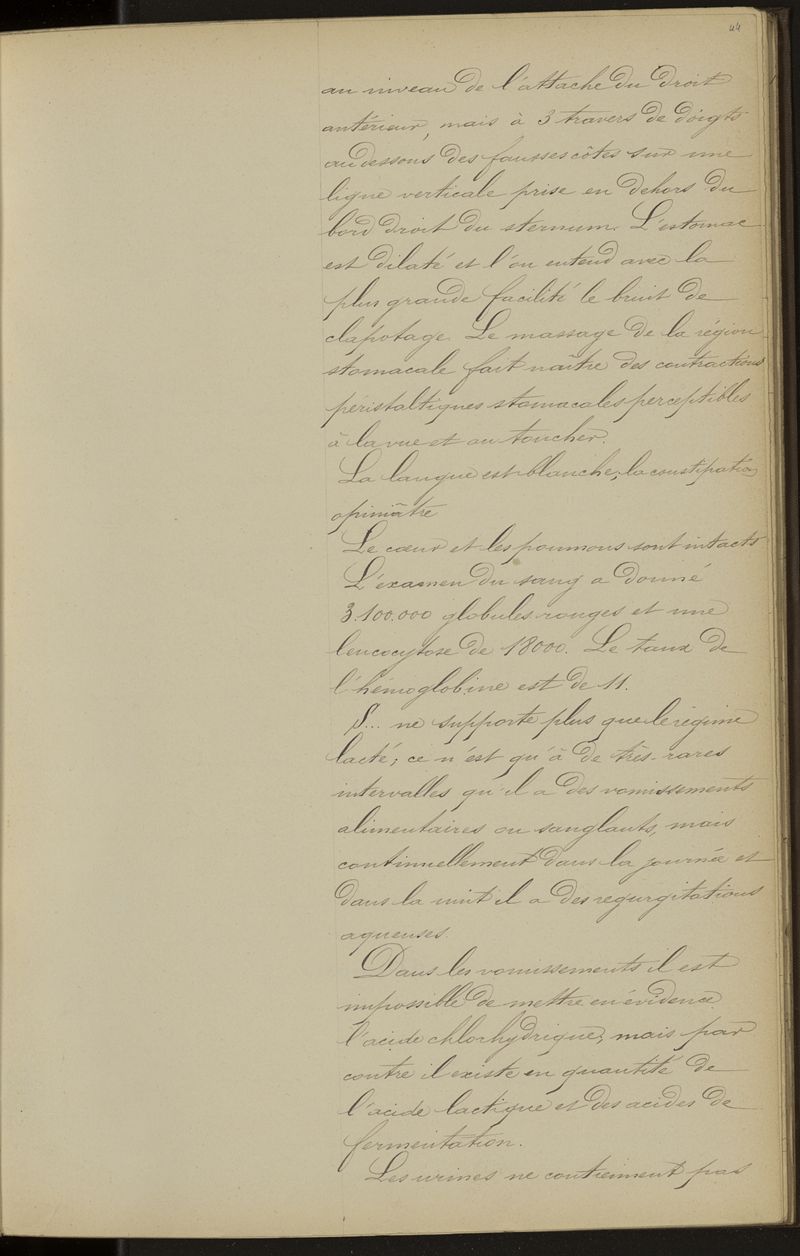 44
au niveau de l'attache du droit
antérieur, mais à 3 travers de doigts
au dessous des fausses côtes sur une
ligne verticale prise en dehors du
bord droit du sternum. L'estomac
est dilaté et l'on entend avec la
plus grande facilité le bruit de
clapotage. Le massage de la région
stomacale fait naître des contractions
péristaltiques stomacales perceptibles
à la vue et au toucher.
La langue est blanche; la constipation
opiniâtre
Le cœur et les poumons sont intacts
L'examen du sang a donné
3.100.000 globules rouges et une
leucocytose de 18000. Le taux de
l'hémoglobine est de 11.
S... ne supporte plus que le régime
lacté; ce n'est qu'à de très-rares
intervalles qu'il a des vomissements
alimentaires ou sanglants, mais
continuellement dans la journée et
dans la nuit il a des regurgitations
aqueuses.
Dans les vomissements il est
impossible de mettre en évidence
l'acide chlorhydrique, mais par
contre il existe en quantité de
l'acide lactique et des acides de
fermentation.
Les urines ne contiennent pas